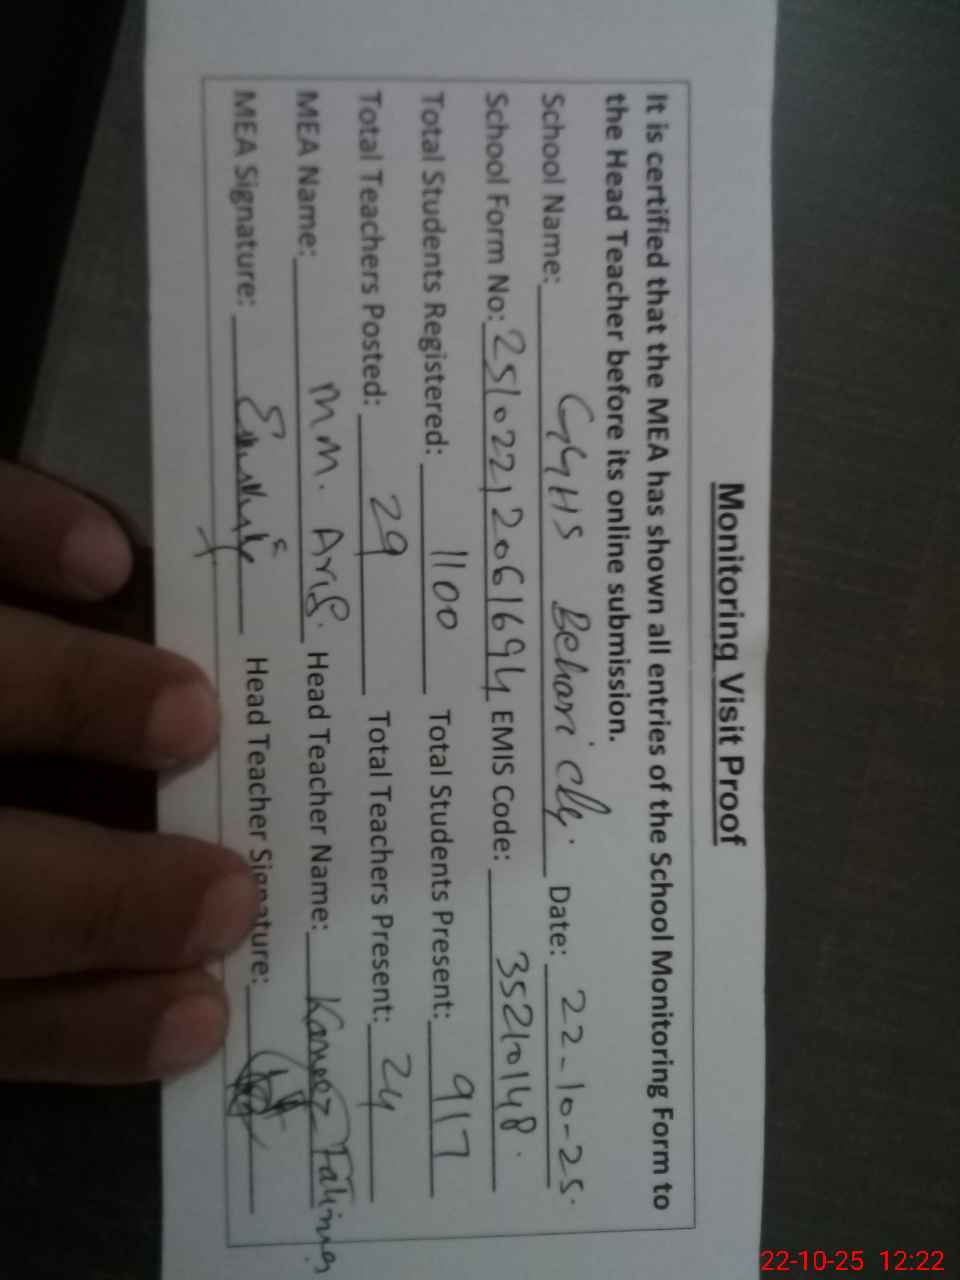 Monitoring Visit Proof
It is certified that the MEA has shown all entries of the School Monitoring Form to
the Head Teacher before its online submission.
School Name: GGHS Behari Cly. Date: 22-10-25.
School Form No: 2510221206169 4 EMIS Code: 35210148.
Total Students Registered: 1100 Total Students Present: 917
Total Teachers Posted: 29 Total Teachers Present: 24
MEA Name: M M. Arif. Head Teacher Name: Kaneez Fatima
MEA Signature: Head Teacher Signature:
22-10-25 12:22